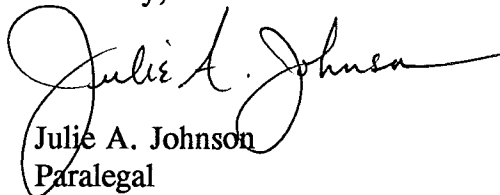 Julie A. Johnson
Julie A. Johnson
Paralegal